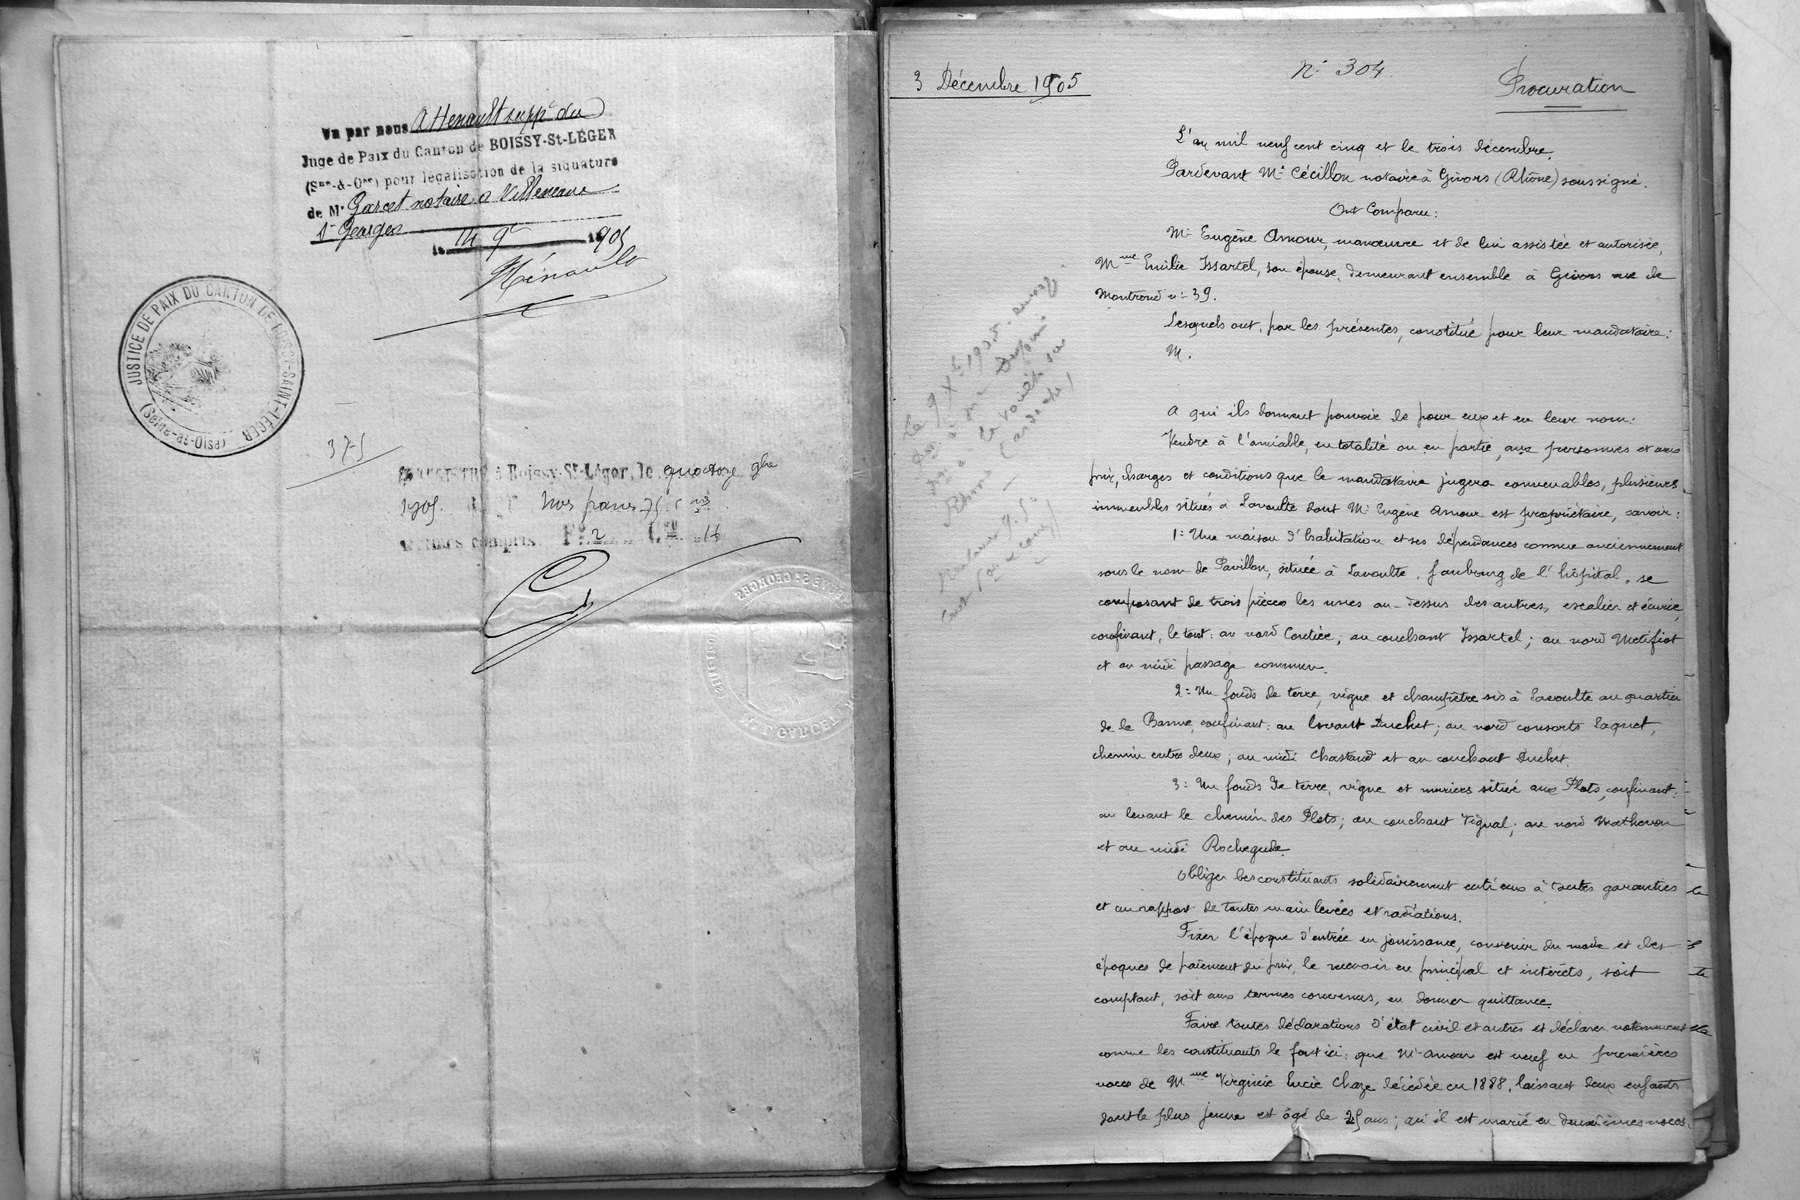 Vu par nous A Henault supp^t du
Juge de Paix du Canton de BOISSY-St-LÉGER
(S^ne-&-O^se) pour légalisation de la signature
de M^e Garcet notaire à Villeneuve
S^t Georges
le 14 9^e 1905
Hénault
JUSTICE DE PAIX DU CANTON DE BOISSY-SAINT-LÉGER
(Seine-et-Oise)
375
à Boissy-S^t-Léger, le quatorze 9bre
1905
compris. F^o 2 C^se 66
3 Décembre 1905
N° 304
Procuration
L'an mil neuf cent cinq et le trois décembre,
Pardevant M^e Cécillon notaire à Givors (Rhône) soussigné.
Ont Comparu:
M^r Eugène Amour, manœuvre et de lui assistée et autorisée,
M^me Emilie Issartel, son épouse, demeurant ensemble à Givors rue de
Montrond n° 39.
Lesquels ont, par les présentes, constitué pour leur mandataire:
M.
A qui ils donnent pouvoir de pour eux et en leur nom:
Vendre à l'amiable, en totalité ou en partie, aux personnes et aux
prix, charges et conditions que le mandataire jugera convenables, plusieurs
immeubles situés à Lavoulte dont M^r Eugène Amour est propriétaire, savoir:
1° Une maison d'habitation et ses dépendances connue anciennement
sous le nom de Pavillon, située à Lavoulte, faubourg de l'hôpital, se
composant de trois pièces les unes au-dessus des autres, escalier et écurie,
confinant, le tout: au nord Coutiée; au couchant Issartel; au nord Metifiot
et au midi passage commun.
2° Un fonds de terre, vigne et champêtre sis à Lavoulte au quartier
de la Banne, confinant: au levant Duchet; au nord consorts Laquet,
chemin entre deux; au midi Chastand et au couchant Duchet.
3° Un fonds de terre, vigne et muriers situé aux Plots, confinant:
au levant le chemin des Plots; au couchant Vignal; au nord Mathevon
et au midi Rochegude.
Obliger les constituants solidairement entre eux à toutes garanties
et au rapport de toutes main levées et radiations.
Fixer l'époque d'entrée en jouissance, convenir du mode et des
époques de paiement du prix, le recevoir en principal et intérêts, soit
comptant, soit aux termes convenus, en donner quittance.
Faire toutes déclarations d'état civil et autres et déclarer notamment
comme les constituants le font ici: que M^r Amour est veuf en premières
noces de M^me Virginie Lucie Chaze décédée en 1888, laissant deux enfants
dont le plus jeune est âgé de 25 ans; qu'il est marié en deuxièmes noces